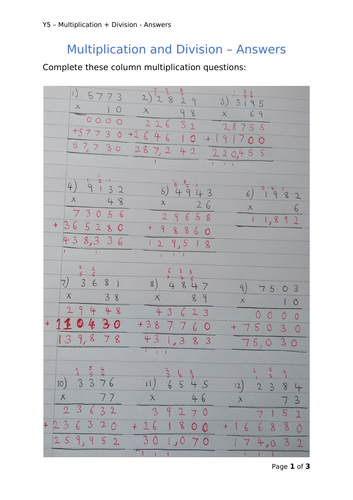 Y5 – Multiplication + Division - Answers
Multiplication and Division – Answers
Complete these column multiplication questions:
1) 5773
x 10
0000
+57730
57,730
2) 2829
x 98
22632
+264610
287,242
3) 3195
x 69
28755
+191700
220,455
4) 9132
x 48
73056
+365280
438,336
5) 4943
x 26
29658
+98860
129,518
6) 1982
x 6
11,892
7) 3681
x 38
29448
+110430
139,878
8) 4847
x 89
43623
+387760
431,383
9) 7503
x 10
0000
+75030
75,030
10) 3376
x 77
23632
+236320
259,952
11) 6545
x 46
39270
+261800
301,070
12) 2384
x 73
7152
+166880
174,032
Page 1 of 3